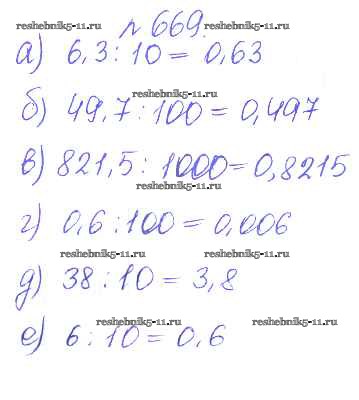 № 669.
reshebnik5-11.ru reshebnik5-11.ru
а) 6,3 : 10 = 0,63
reshebnik5-11.ru
б) 49,7 : 100 = 0,497
в) 821,5 : 1000 = 0,8215
reshebnik5-11.ru
г) 0,6 : 100 = 0,006
reshebnik5-11.ru reshebnik5-11.ru
д) 38 : 10 = 3,8
reshebnik5-11.ru reshebnik5-11.ru
е) 6 : 10 = 0,6